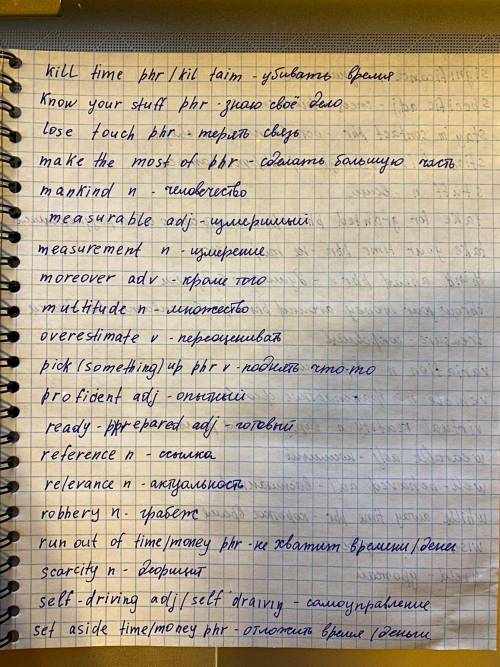 kill time phr /kil taim - убивать время
know your stuff phr - знаю своё дело
lose touch phr - терять связь
make the most of phr - сделать большую часть
mankind n - человечество
measurable adj - измеримый
measurement n - измерение
moreover adv - кроме того
multitude n - множество
overestimate v - переоценивать
pick (something) up phr v - поднять что-то
profident adj - опытный
ready-prepared adj - готовый
reference n - ссылка
relevance n - актуальность
robbery n - грабеж
run out of time/money phr - не хватит времени/денег
scarcity n - дефицит
self-driving adj/self draiviy - самоуправление
set aside time/money phr - отложить время/деньги